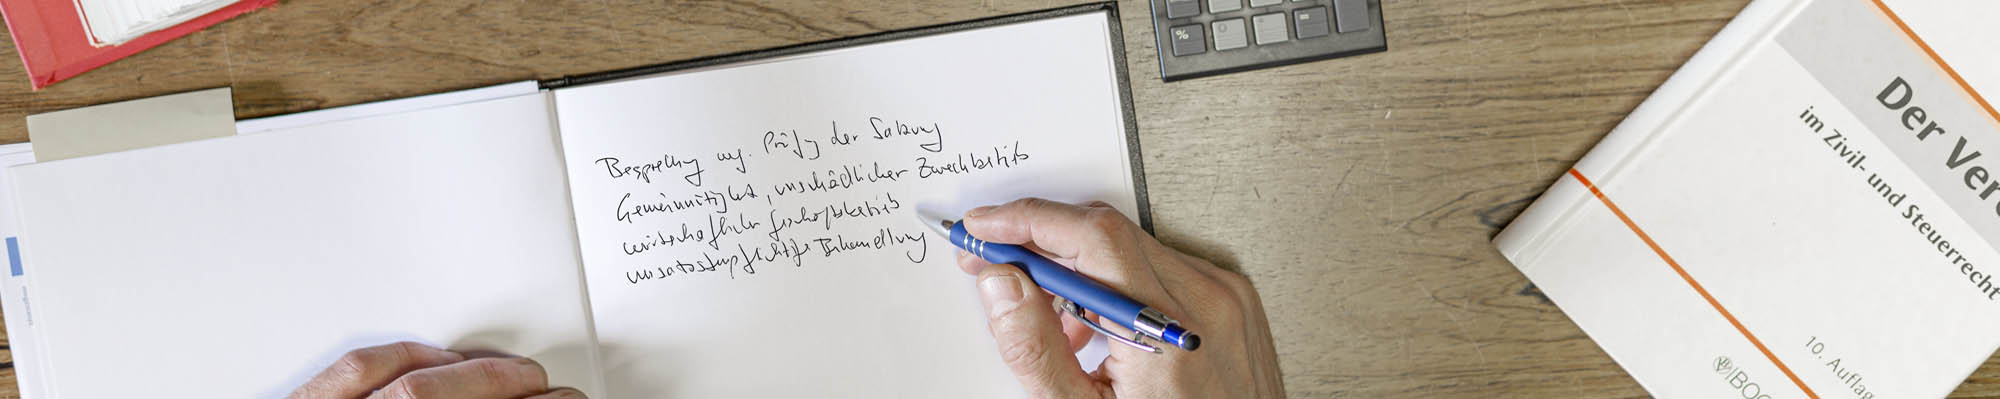 Besprechung wg. Prüfg der Satzung
Gemeinnützigkeit, unschädlicher Zweckbetrieb
wirtschaftlicher Geschäftsbetrieb
umsatzsteuerpflichtige Behandlung
%
Der Vere
im Zivil- und Steuerrecht
10. Auflag
BOO